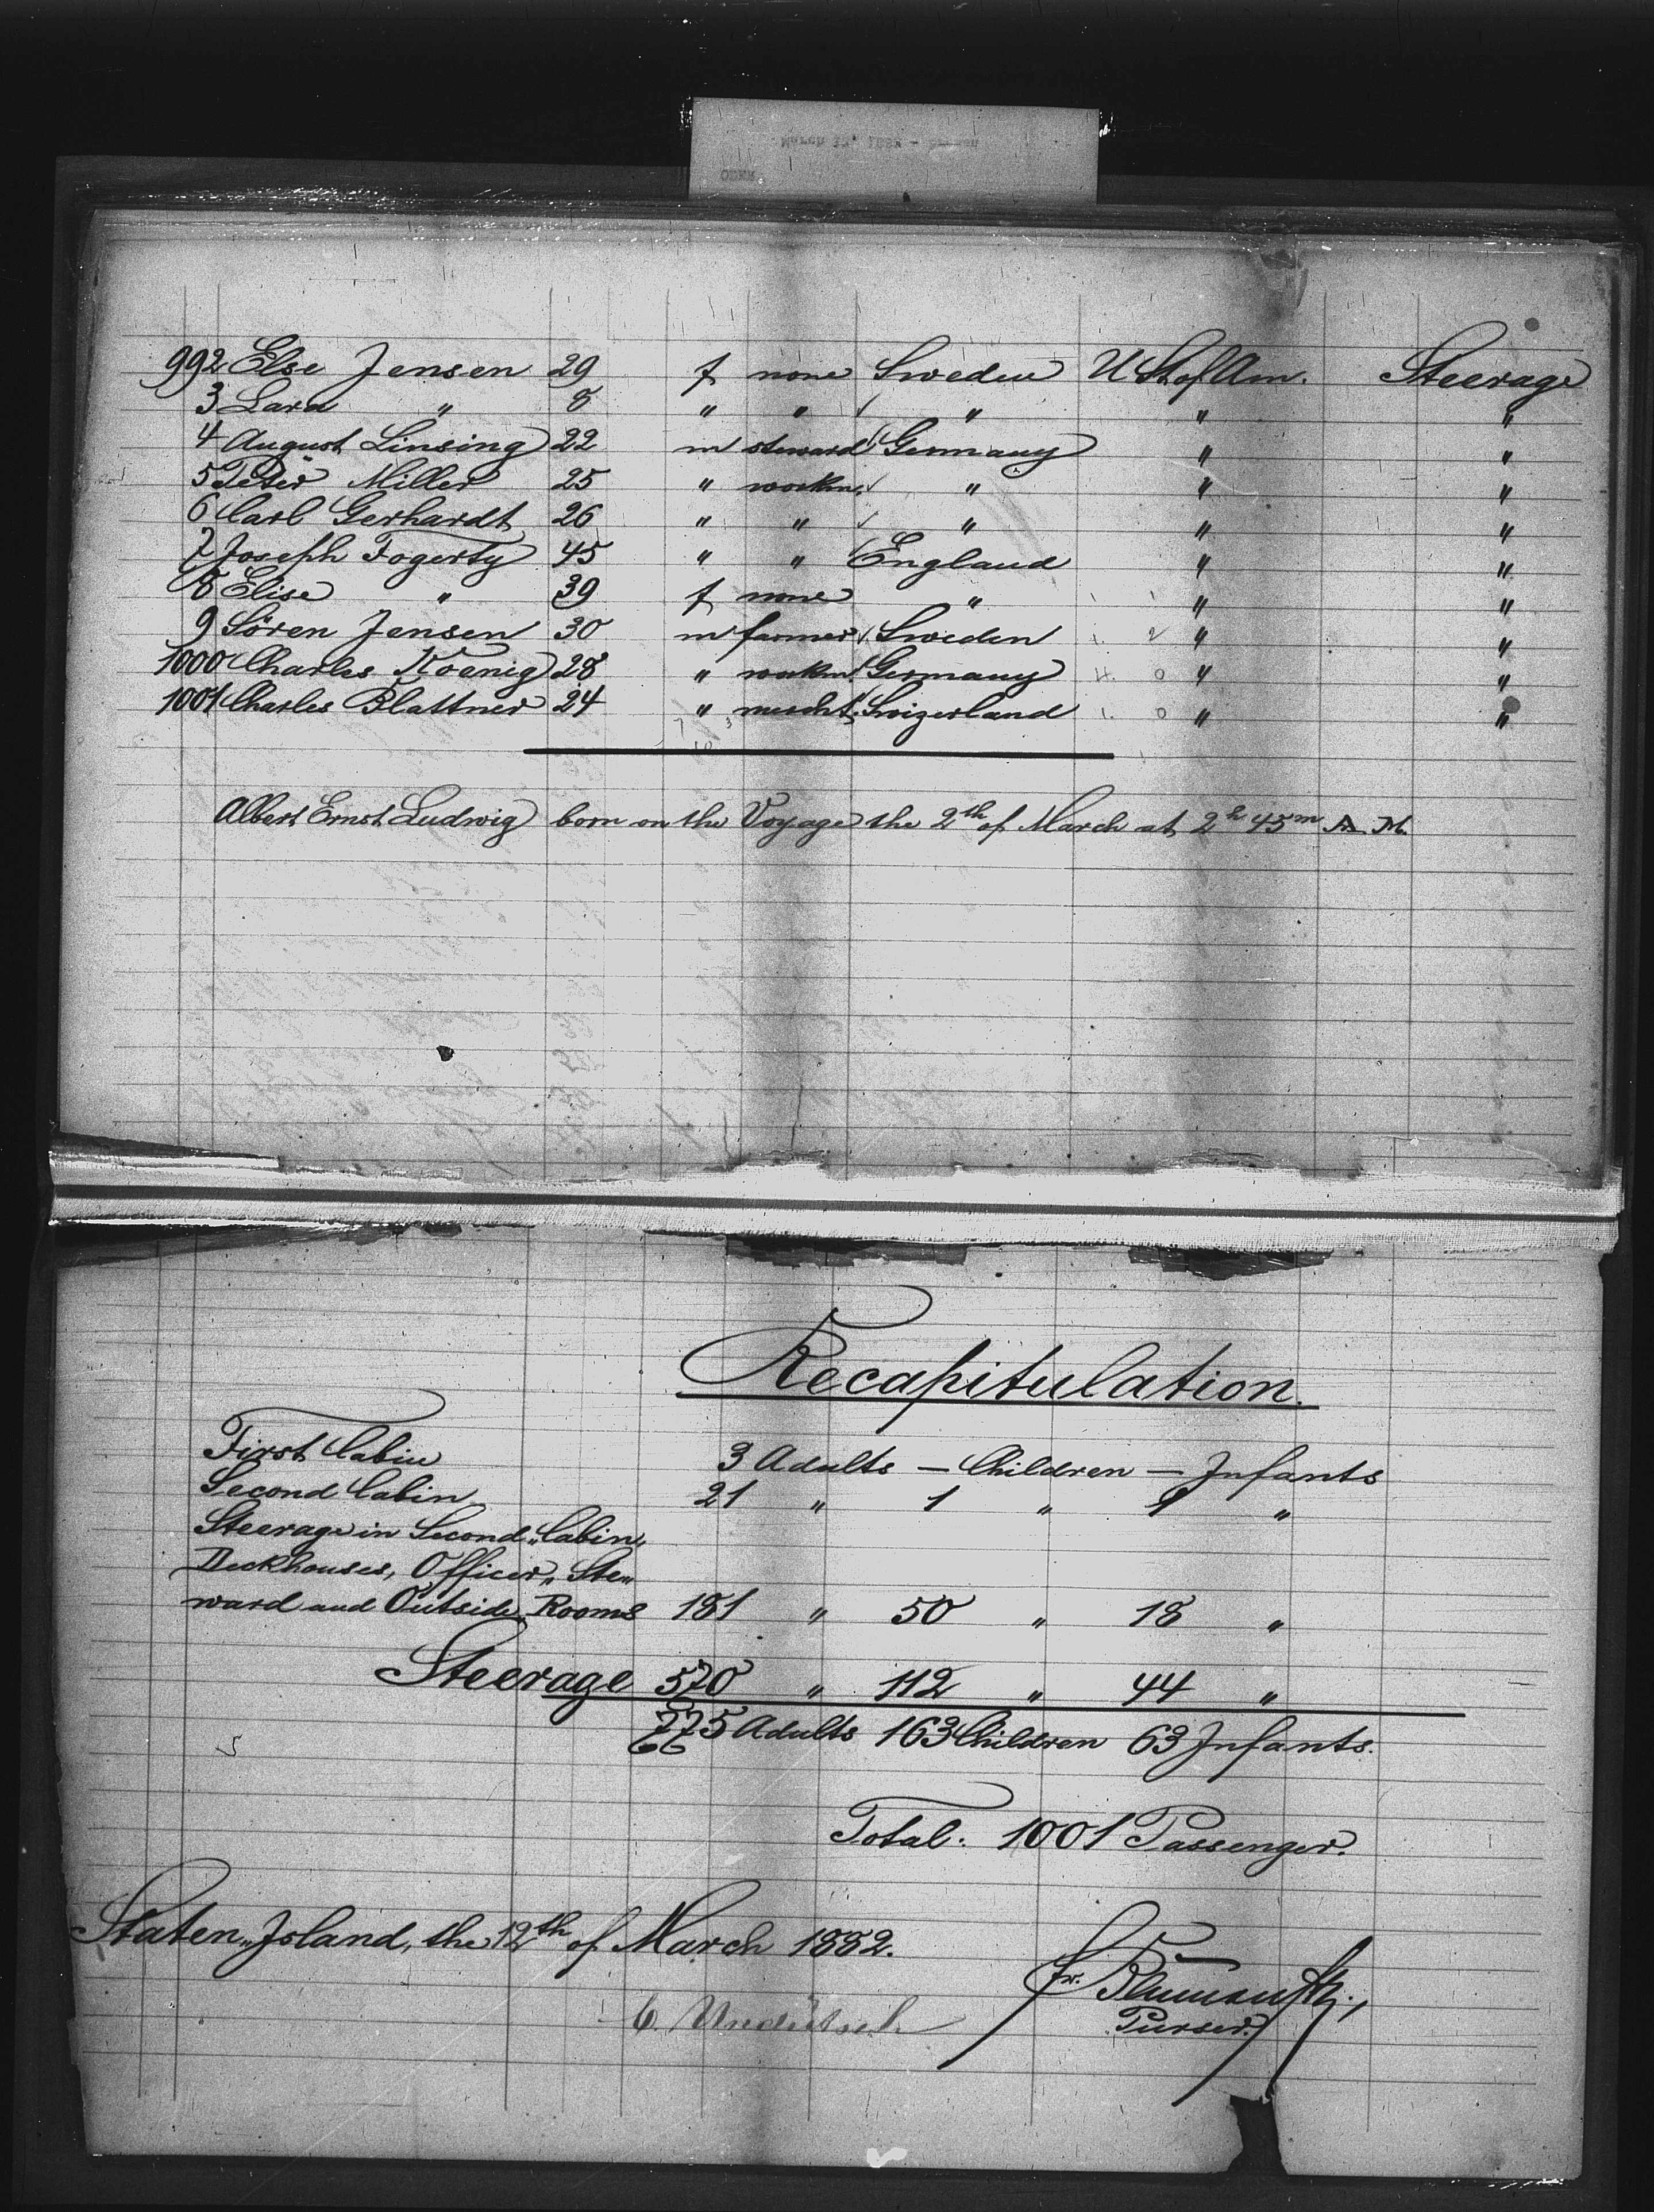 992 Else Jensen 29 f none Sweden U St of Am. Steerage
3 Lara " 8 " " " " "
4 August Linsing 22 m steward Germany " "
5 Peter Miller 25 " workm. " " "
6 Carl Gerhardt 26 " " " " "
7 Joseph Fogerty 45 " " England " "
8 Elise " 39 f none " " "
9 Sören Jensen 30 m farmer Sweden " "
1000 Charles Koenig 28 " workm. Germany " "
1001 Charles Blattner 24 " mercht. Swizerland " "
Albert Ernst Ludwig born on the Voyage the 2th of March at 2h 45m A. M.
Recapitulation.
First Cabin 3 Adults — Children — Infants
Second Cabin 21 " 1 " 1 "
Steerage in Second „Cabin„
Deckhouses, Officer„ Ste„
ward and Outside„ Rooms 181 " 50 " 18 "
Steerage 570 " 112 " 44 "
775 Adults 163 Children 63 Infants.
Total: 1001 Passenger.
Staten„Island, the 12th of March 1882.
Purser.